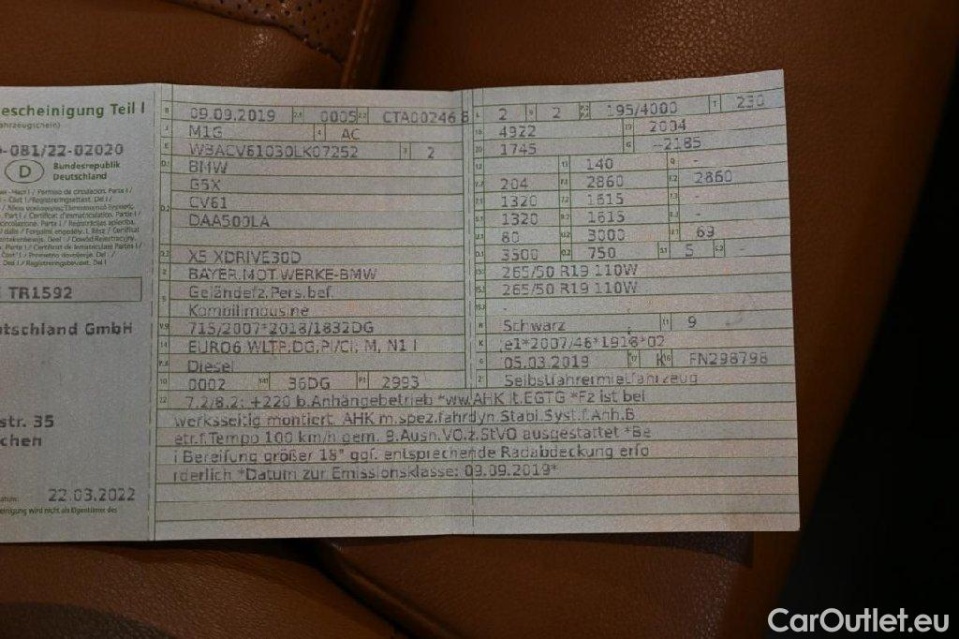 escheinigung Teil I
ahrzeugschein)
-081/22-02020
D Bundesrepublik
Deutschland
TR1592
utschland GmbH
str. 35
chen
22.03.2022
09.09.2019 0005 CTA00246 8
M1G AC
WBACV61030LK07252 2
BMW
G5X
CV61
DAA500LA
X5 XDRIVE30D
BAYER.MOT.WERKE-BMW
Geländefz.Pers.bef.
Kombilimousine
715/2007*2018/1832DG
EURO6 WLTP,DG,PI/CI; M, N1 I
Diesel
0002 36DG 2993
2 2 195/4000 230
4922 2004
1745 --2185
- 140 -
204 2860 2860
1320 1615 -
1320 1615 -
80 3000 69
3500 750 5 -
265/50 R19 110W
265/50 R19 110W
-
Schwarz 9
e1*2007/46*1918*02
05.03.2019 K FN298798
Selbstfahrermietfahrzeug
7.2/8.2: +220 b.Anhängebetrieb *ww.AHK lt.EGTG *Fz ist bei
werksseitig montiert. AHK m.spez.fahrdyn.Stabi.Syst.f.Anh.B
etr.f.Tempo 100 km/h gem. 9.Ausn.VO.z.StVO ausgestattet *Be
i Bereifung größer 18" ggf. entsprechende Radabdeckung erfo
rderlich *Datum zur Emissionsklasse: 09.09.2019*
CarOutlet.eu